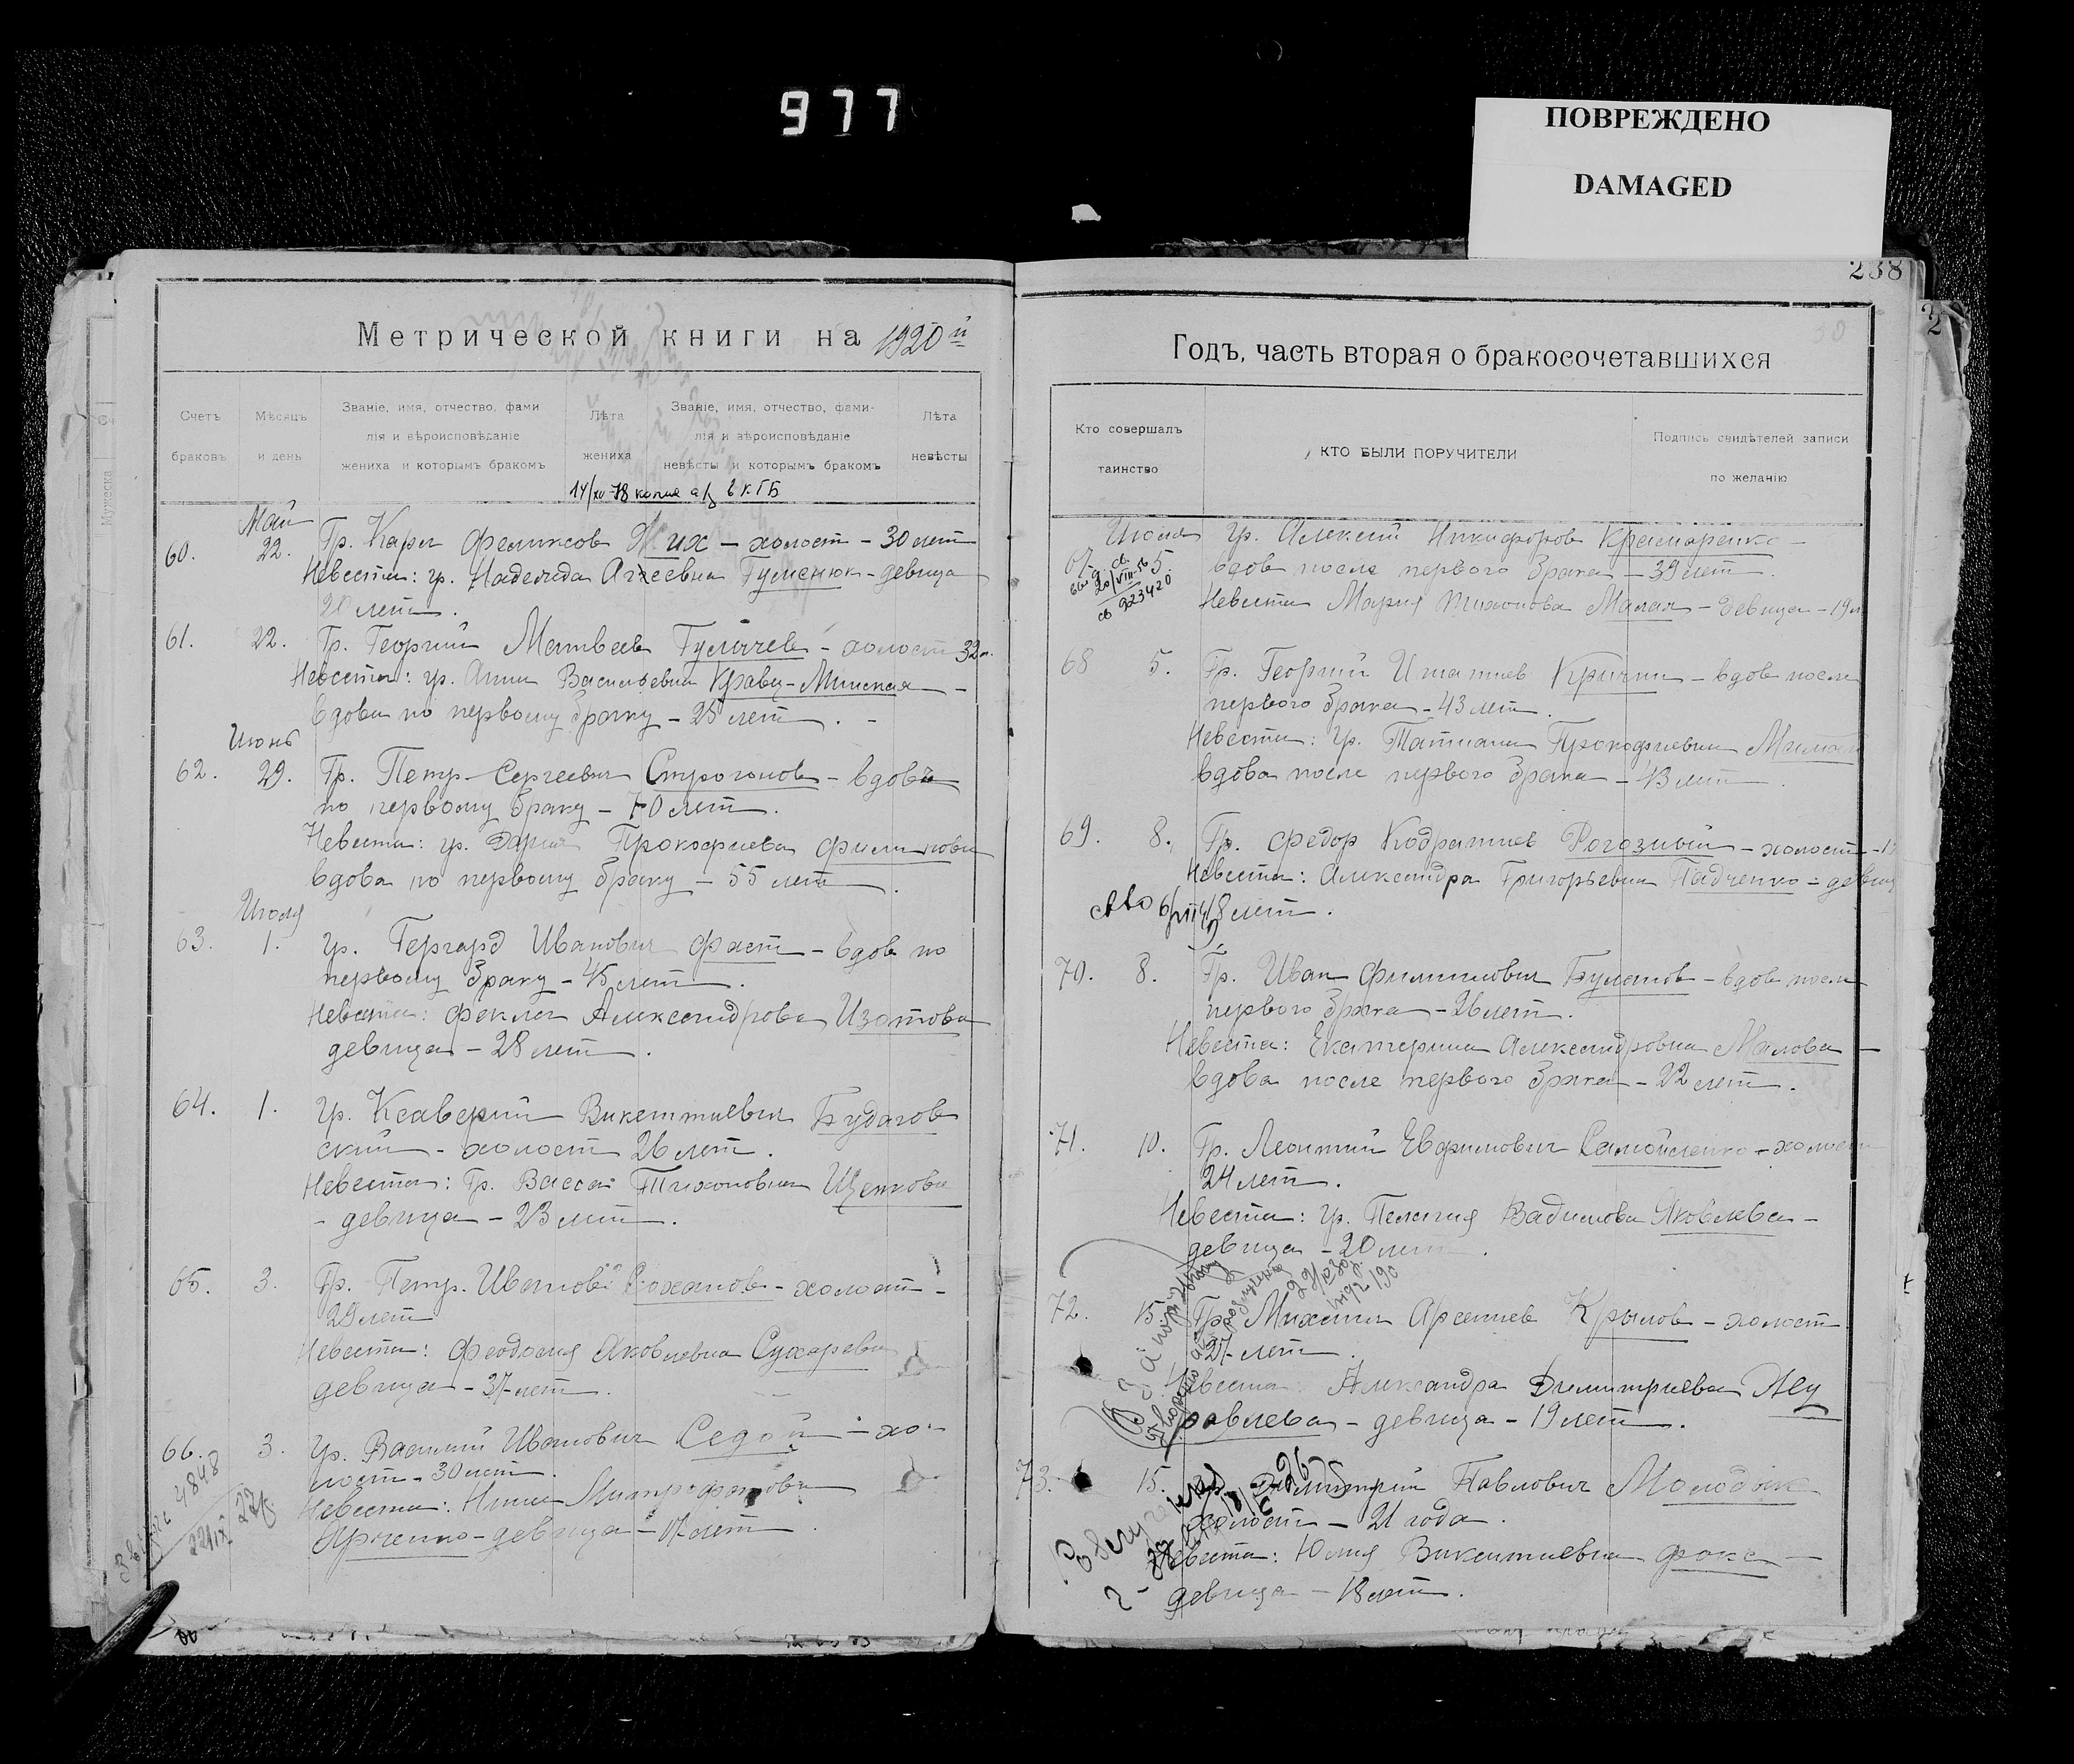 977
ПОВРЕЖДЕНО
DAMAGED
238
2
Метрической книги на 1920й
Счетъ
браковъ
Мѣсяцъ
и день
Званіе, имя, отчество, фами
лія и вѣроисповѣданіе
жениха и которымъ бракомъ
Лѣта
жениха
Званіе, имя, отчество, фами-
лія и вѣроисповѣданіе
невѣсты и которымъ бракомъ
Лѣта
невѣсты
копия в КГБ
Май
60. 22. Гр. Карл Феликсов их – холост – 30 лет
Невеста: гр. Надежда Агеевна Гуменюк – девица
20 лет.
61. 22. Гр. Георгий Матвеев – холост 32 л.
Невеста: гр. Анна Васильевна Кравц-Минская –
вдова по первому браку – 25 лет. –
Июнь
62. 29. Гр. Петр Сергеевич Строгонов – вдовъ
по первому браку – 70 лет.
Невеста: гр. Дарья Прокофиева Филипова
вдова по первому браку – 55 лет.
Июля
63. 1. Гр. Гергард Иванович Фаст – вдов по
первому браку – 45 лет.
Невеста: Фекла Александрова Изотова
девица – 28 лет.
64. 1. Гр. Ксаверий Викентиевич Будзгов
ский – холост 26 лет.
Невеста: Гр. Васса Тихоновна Щенкова
– девица – 23 лет.
65. 3. Гр. Петр Иванов Соханов – холост –
29 лет
Невеста: Феодосия Яковлевна Сухарева
девица – 37 лет.
66. 3. Гр. Василий Иванович Седой – хо-
лост – 30 лет.
Невеста: Нина Митрофанова
Юрченко – девица – 17 лет.
4848
Годъ, часть вторая о бракосочетавшихся
Кто совершалъ
таинство
КТО БЫЛИ ПОРУЧИТЕЛИ
Подпись свидѣтелей записи
по желанію
Июля
67. 5. Гр. Алексей Никифоров Крамаренко –
вдов после первого брака – 39 лет.
Невеста Мария Тихонова Малая – девица – 19 л
20/VIII-56
св 923420
68 5. Гр. Георгий Игнатиев Кричин – вдов после
первого брака – 43 лет.
Невеста: Гр. Татиана Прокофиевна
вдова после первого брака – 43 лет.
69. 8. Гр. Федор Кодратиев Рогозный – холост – 1
Невеста: Александра Григорьевна Падченко – девиц
18 лет.
70. 8. Гр. Иван Филиппович Буланов – вдов после
первого брака – 26 лет.
Невеста: Екатерина Александровна Малова –
вдова после первого брака – 22 лет.
71. 10. Гр. Леонтий Евфимович Самойленко – холост
24 лет.
Невеста: гр. Пелагия Вадимова Яковлева –
девица – 20 лет.
72. 15. Гр. Михаил Арсениев Крылов – холост
27 лет.
Невеста: Александра Димитриева Жу
равлева – девица – 19 лет.
73. 15. Димитрий Павлович Молодык
холост – 21 года.
Невеста: Юлия Викентиевна Фокс –
девица – 18 лет.